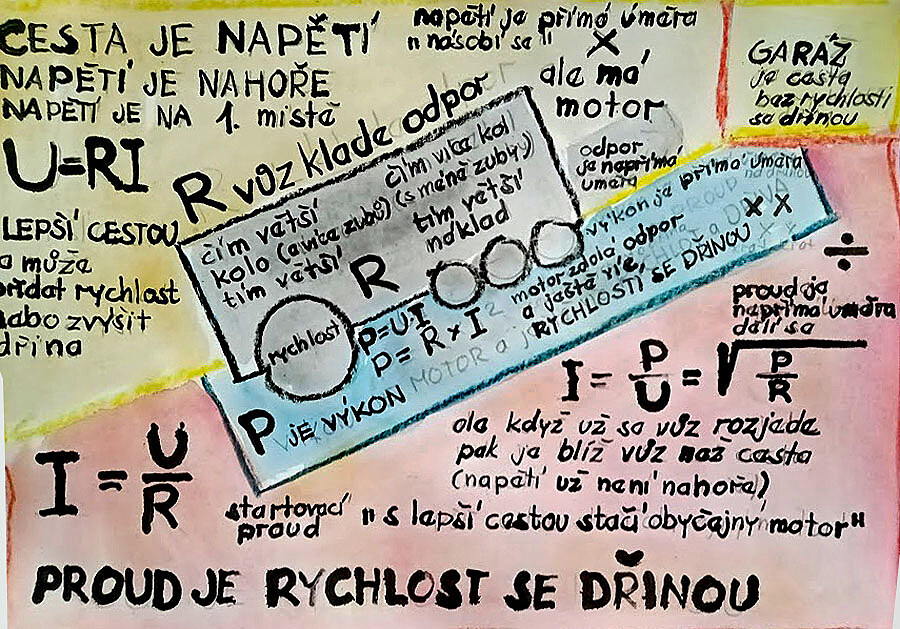 CESTA JE NAPĚTÍ
NAPĚTÍ JE NAHOŘE
NAPĚTÍ JE NA 1. místě
U=RI
LEPŠÍ CESTOU
a může
přidat rychlost
nebo zvýšit
dřina
napětí je přímá úměra
" násobí se "
×
ale má
motor
GARÁŽ
je cesta
bez rychlosti
se dřinou
odpor
je nepřímá
úměra
R vůz klade odpor
čím více kol
(s méně zuby)
tím větší
náklad
čím větší
kolo (a více zubů)
tím větší
R
rychlost
P=U·I
P= R×I²
P JE VÝKON
MOTOR a
výkon je přímá úměra
× ×
motor zdolá odpor
a ještě víc,
RYCHLOSTÍ SE DŘINOU
÷
proud je
nepřímá úměra
dělí se
I = P/U = √P/R
ale když už se vůz rozjede
pak je blíž vůz než cesta
(napětí už není nahoře)
I = U/R
startovací
proud
" s lepší cestou stačí obyčejný motor"
PROUD JE RYCHLOST SE DŘINOU